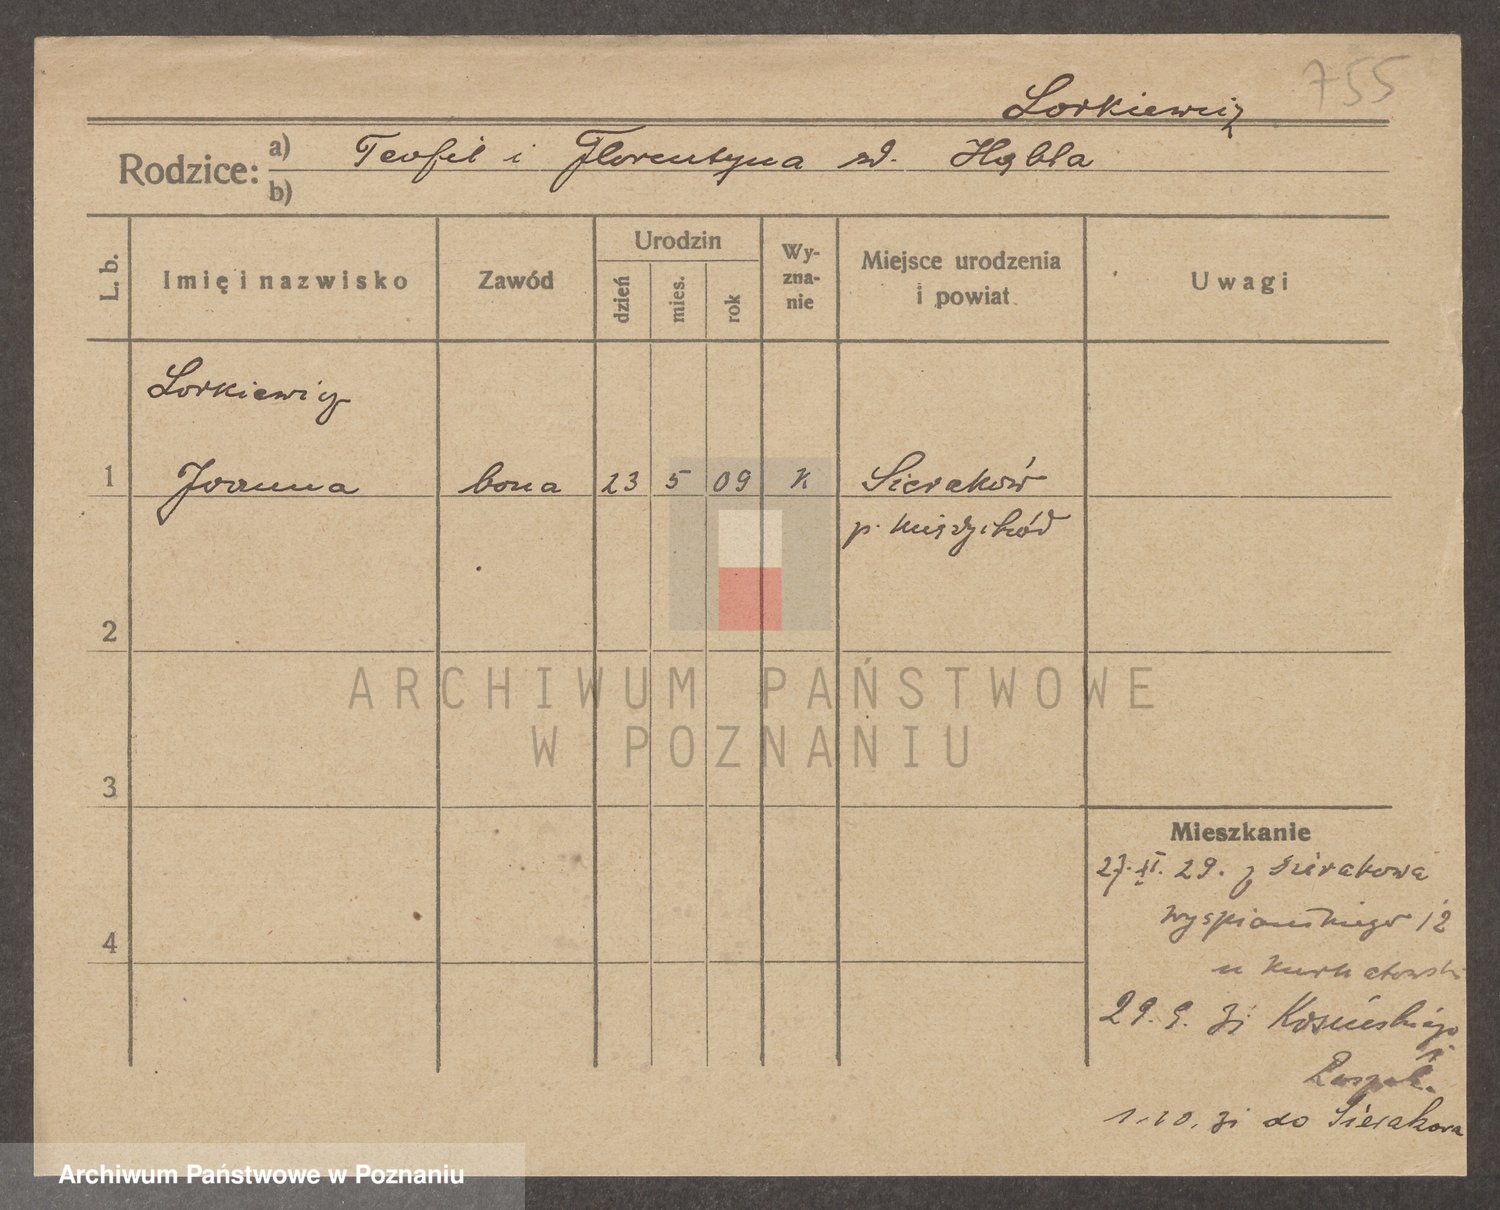 755
Lorkiewicz
Rodzice: a) Teofil i Florentyna zd. Hąbla
b)
L. b.
Imię i nazwisko
Zawód
Urodzin
dzień
mies.
rok
Wy-
zna-
nie
Miejsce urodzenia
i powiat
Uwagi
Lorkiewicz
1 Joanna bona 23 5 09 K Sieraków
p. Międzychód
2
ARCHIWUM PAŃSTWOWE
W POZNANIU
3
Mieszkanie
27. XI. 29. z Sierakowa
Wyspiańskiego 12
u
4
29. 9. 31 Kosińskiego
1.10. 31 do Sierakowa
Archiwum Państwowe w Poznaniu